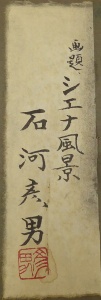 画題
シエナ風景
石河彦男